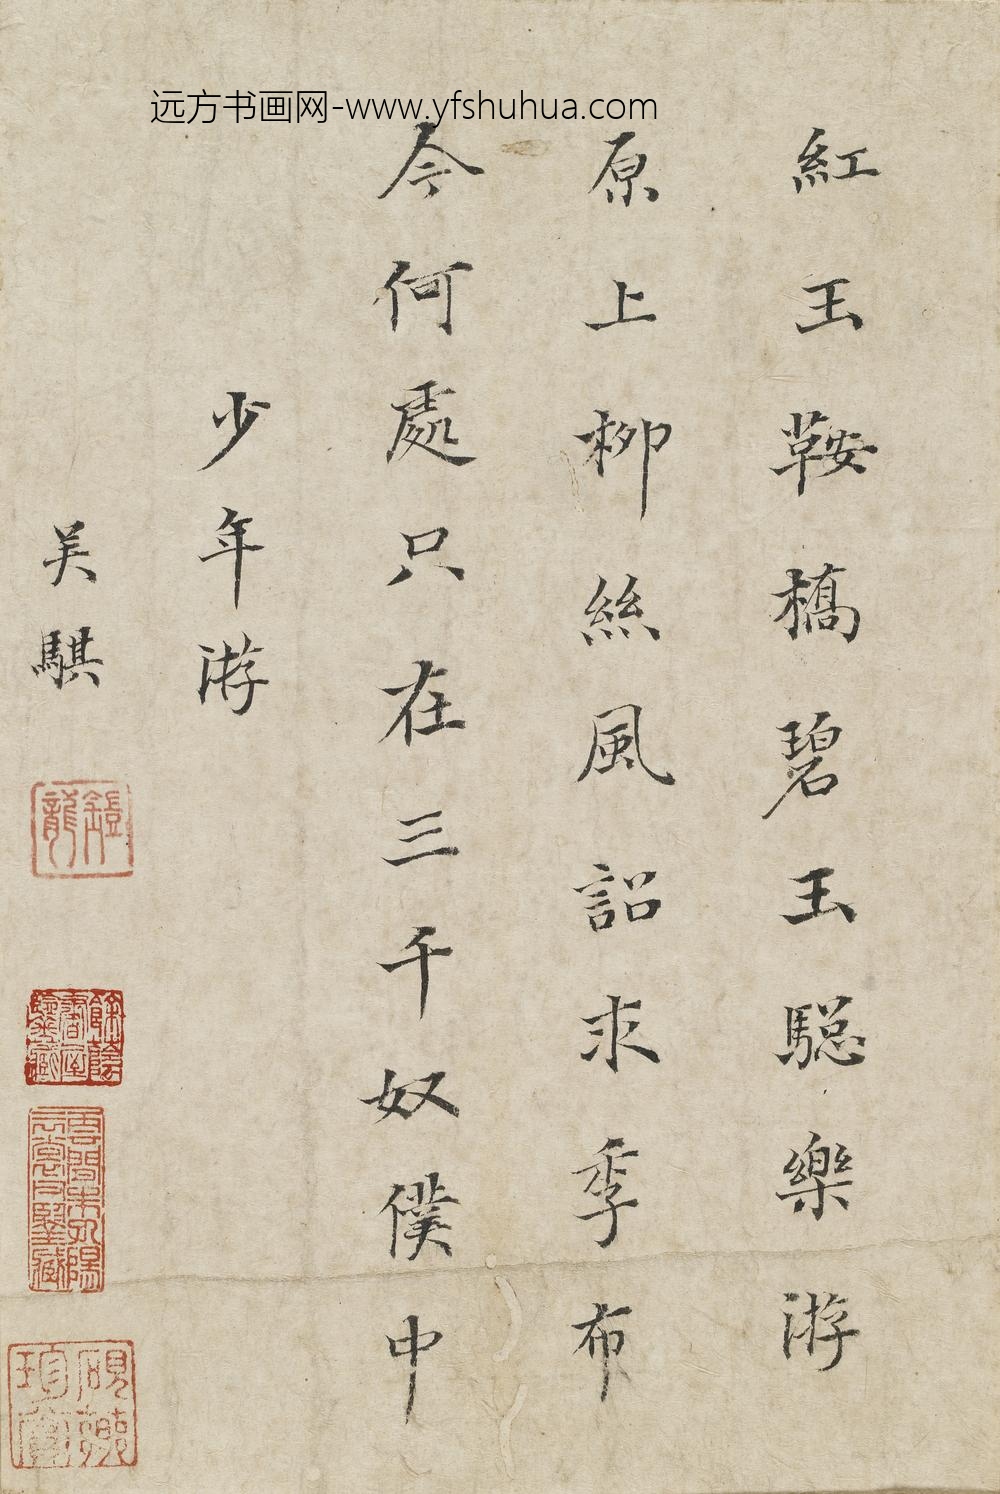 远方书画网-www.yfshuhua.com
紅玉鞍橋碧玉驄樂游
原上柳絲風詔求季布
今何處只在三千奴僕中
少年游
吴騏
鎧龍
餘陰書屋鑒藏